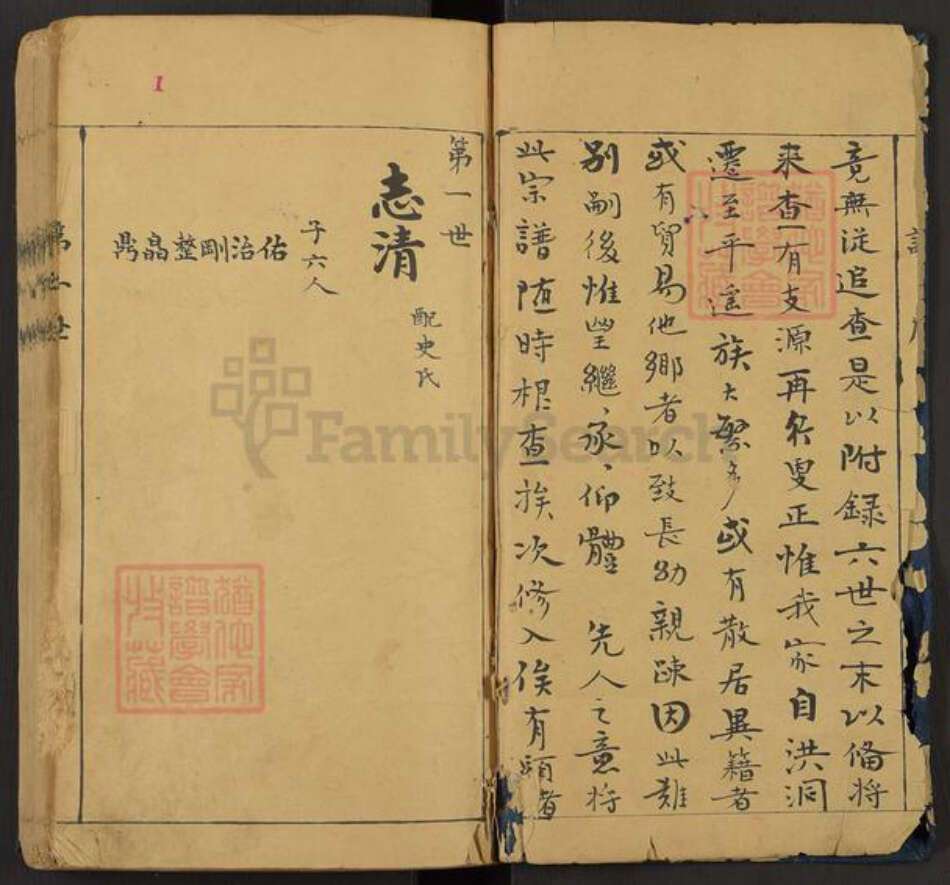 竟無従追查是以附録六世之末以俻將
来查有支源再行叓正惟我家自洪洞
遷至平遥族大繁多或有散居異籍者
或有貿易他鄉者以致長幼親踈因此難
别嗣後惟望繼承、仰體 先人之意将
此宗譜随時根查挨次修入俟有頭者
第一世
志清
配史氏
子六人
佑治剛整晶鼎
第一世
1
FamilySearch